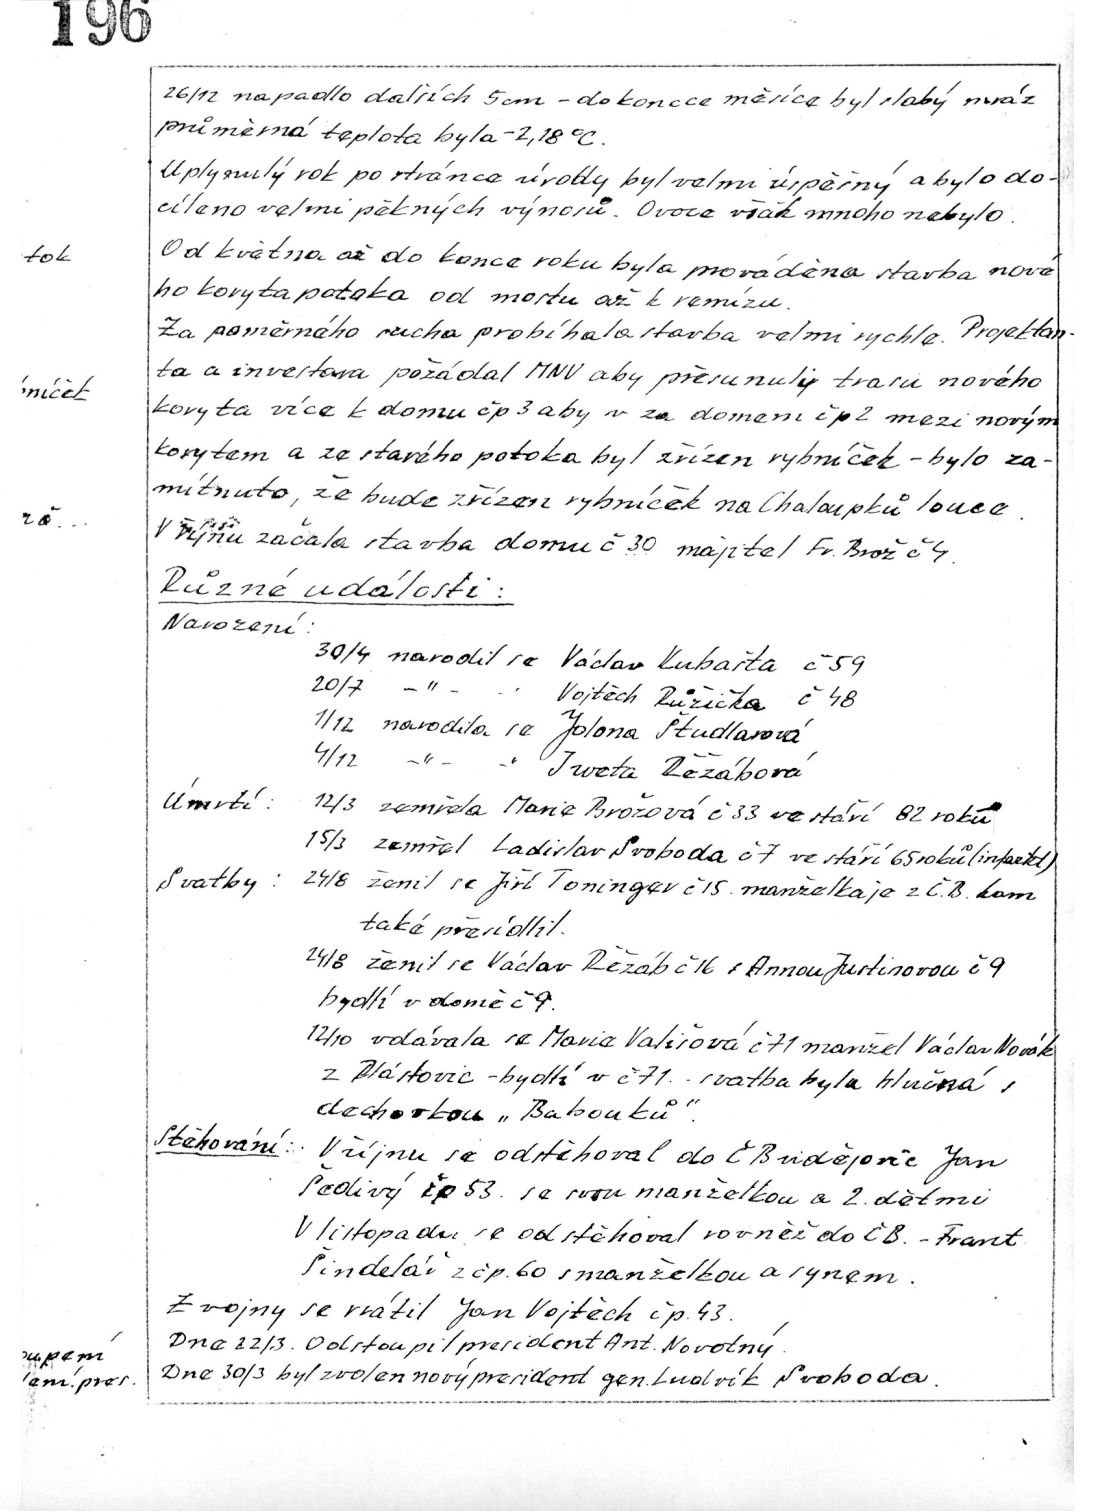 196
26/12 napadlo dalších 5cm – do koncce měsíce byl slabý mráz
průměrná teplota byla -2,18°C.
Uplynulý rok po stránce úrody byl velmi úspěšný a bylo do-
cíleno velmi pěkných výnosů. Ovoce však mnoho nebylo.
tok
Od května až do konce roku byla prováděna stavba nové
ho koryta potoka od mostu až k remízu.
Za poměrného sucha probíhala stavba velmi rychle. Projektan-
níček
ta a investora požádal MNV aby přesunuly trasu nového
koryta více k domu čp 3 aby v za domem čp 2 mezi novým
korytem a ze starého potoka byl zřízen rybníček – bylo za-
mítnuto, že bude zřízen rybníček na Chaloupků louce.
V říjnu začala stavba domu č 30 majitel Fr. Brož č 4.
Různé události:
Narození:
30/4 narodil se Václav Kubašta č 59
20/7 –"– " Vojtěch Růžička č 48
1/12 narodila se Jolona Študlarová
4/12 –"– " Iveta Řěžábová
Úmrtí: 12/3 zemřela Marie Brožová č 33 ve stáří 82 roků
15/3 zemřel Ladislav Svoboda č 7 ve stáří 65 roků (infarkt)
Svatby: 24/8 ženil se Jiří Toninger č 15. manželka je z Č.B. kam
také přesídlil.
24/8 ženil se Václav Řěžáb č 16 s Annou Justinovou č 9
bydlí v domě č 9.
12/10 vdávala se Marie Vališová č 71 manžel Václav Novák
z Plástovic – bydlí v č 71. svatba byla hlučná s
dechovkou „Babouků".
Stěhování: V říjnu se odstěhoval do Č Budějovic Jan
Šedivý čp 53. se svou manželkou a 2. dětmi
V listopadu se odstěhoval rovněž do ČB. – Frant
Šindelář z čp. 60 s manželkou a synem.
Z vojny se vrátil Jan Vojtěch čp. 43.
oupení
Dne 22/3. Odstoupil president Ant. Novotný.
lení. pres.
Dne 30/3 byl zvolen nový president gen. Ludvík Svoboda.